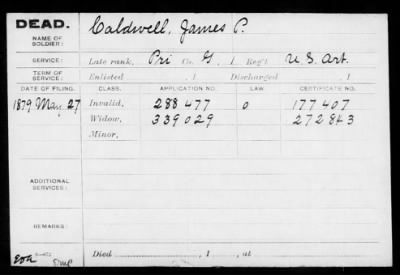 DEAD.
Caldwell, James P.
NAME OF
SOLDIER:
SERVICE:
Late rank, Pri Co. G, 1 Reg't U.S. Art.
TERM OF
SERVICE:
Enlisted , 1 Discharged , 1
DATE OF FILING. CLASS. APPLICATION NO. LAW. CERTIFICATE NO.
1879 May 27 Invalid, 288477 0 177407
Widow, 339029 272843
Minor,
ADDITIONAL
SERVICES:
REMARKS:
Died , 1 , at